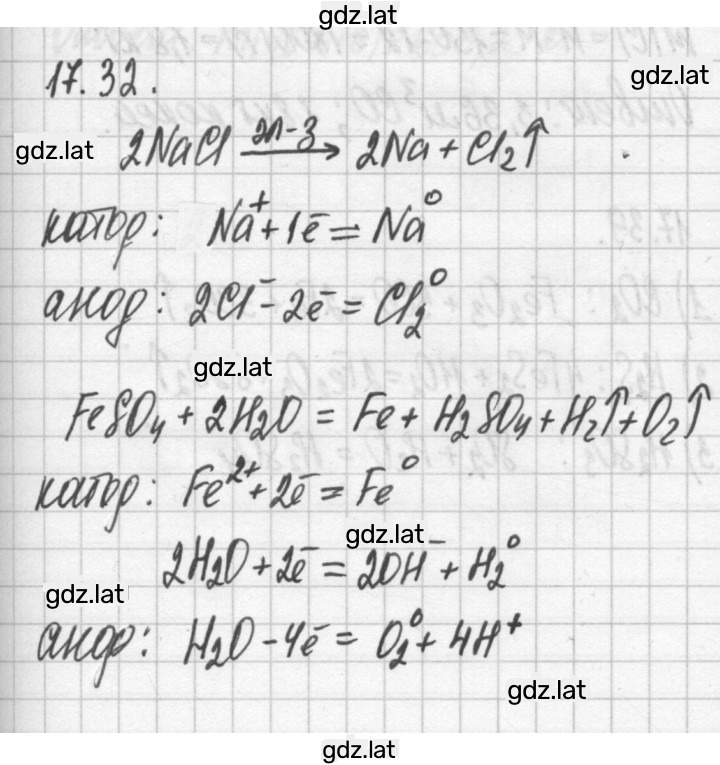 gdz.lat
17.32.
gdz.lat
gdz.lat 2NaCl эл-з → 2Na + Cl₂↑
катод: Na⁺ + 1ē = Na⁰
анод: 2Cl⁻ - 2ē = Cl₂⁰
gdz.lat
FeSO₄ + 2H₂O = Fe + H₂SO₄ + H₂↑ + O₂↑
катод: Fe²⁺ + 2ē = Fe⁰
gdz.lat
2H₂O + 2ē = 2OH⁻ + H₂⁰
gdz.lat
анод: H₂O - 4ē = O₂⁰ + 4H⁺
gdz.lat
gdz.lat